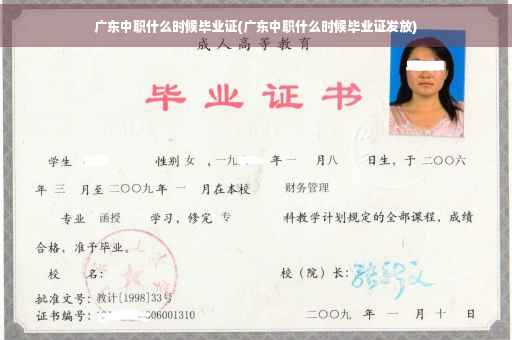 广东中职什么时候毕业证(广东中职什么时候毕业证发放)
成人高等教育
毕业证书
学生 性别 女 ，一九 年 一 月 八 日生，于 二〇〇六
年 三 月至 二〇〇九 年 一 月在本校 财务管理
专业 函授 学习，修完 专 科教学计划规定的全部课程，成绩
合格，准予毕业。
校 名： 校（院）长：
批准文号：教计[1998]33号
证书编号： 06001310 二〇〇九 年 一 月 十 日